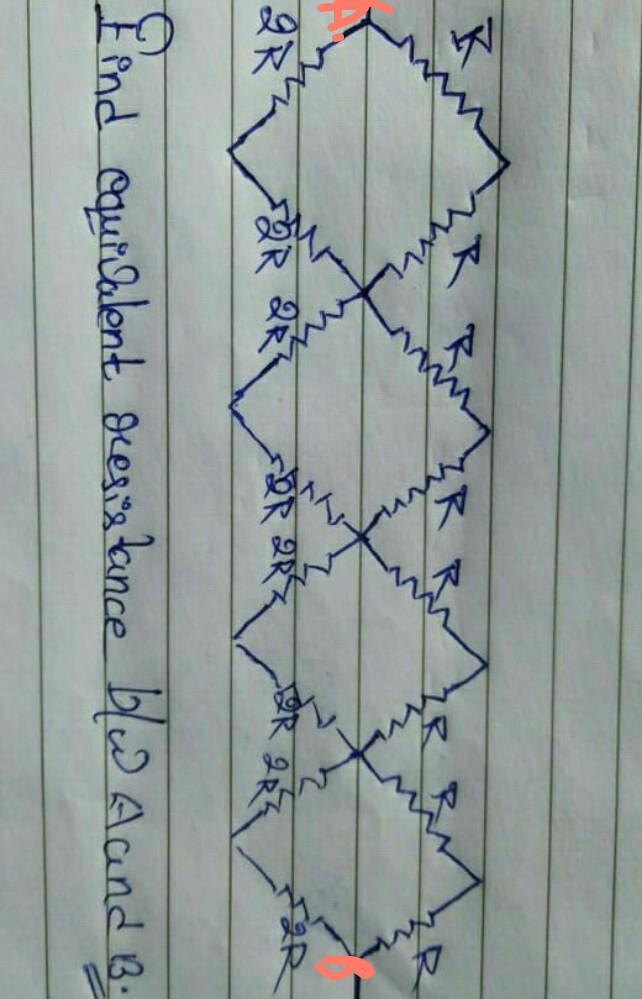 A.
R R R R R R R R
2R 2R 2R 2R 2R 2R 2R 2R
B
Find equivalent resistance b/w A and B.